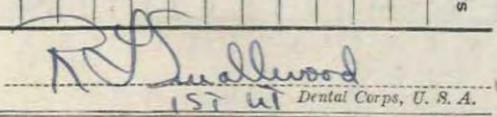 s
R L Smallwood
1ST LT Dental Corps, U. S. A.